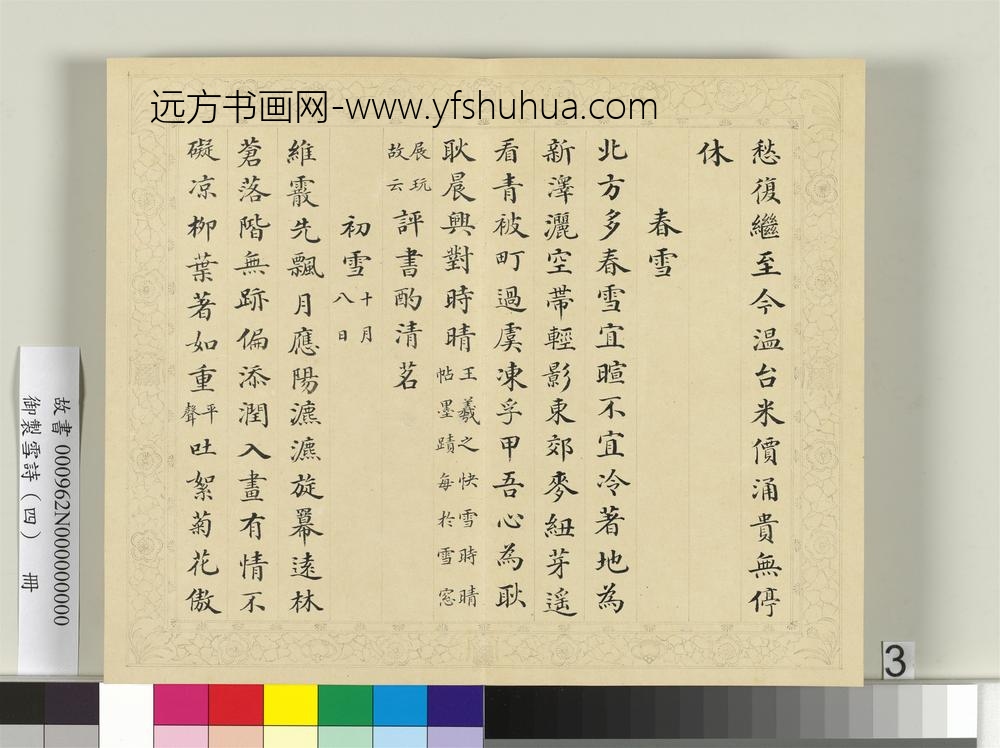 远方书画网-www.yfshuhua.com
愁復繼至今温台米價涌貴無停
休
春雪
北方多春雪宜暄不宜冷著地為
新澤灑空帶輕影東郊麥紐芽遥
看青被町過虞凍孚甲吾心為耿
耿晨興對時晴王羲之快雪時晴帖墨蹟每於雪窓
展玩故云評書酌清茗
初雪十月八日
維霰先飄月應陽瀌瀌旋羃遠林
蒼落階無跡偏添潤入畫有情不
礙凉柳葉著如重平聲吐絮菊花傲
故書 000962N000000000
御製雪詩（四） 冊
3